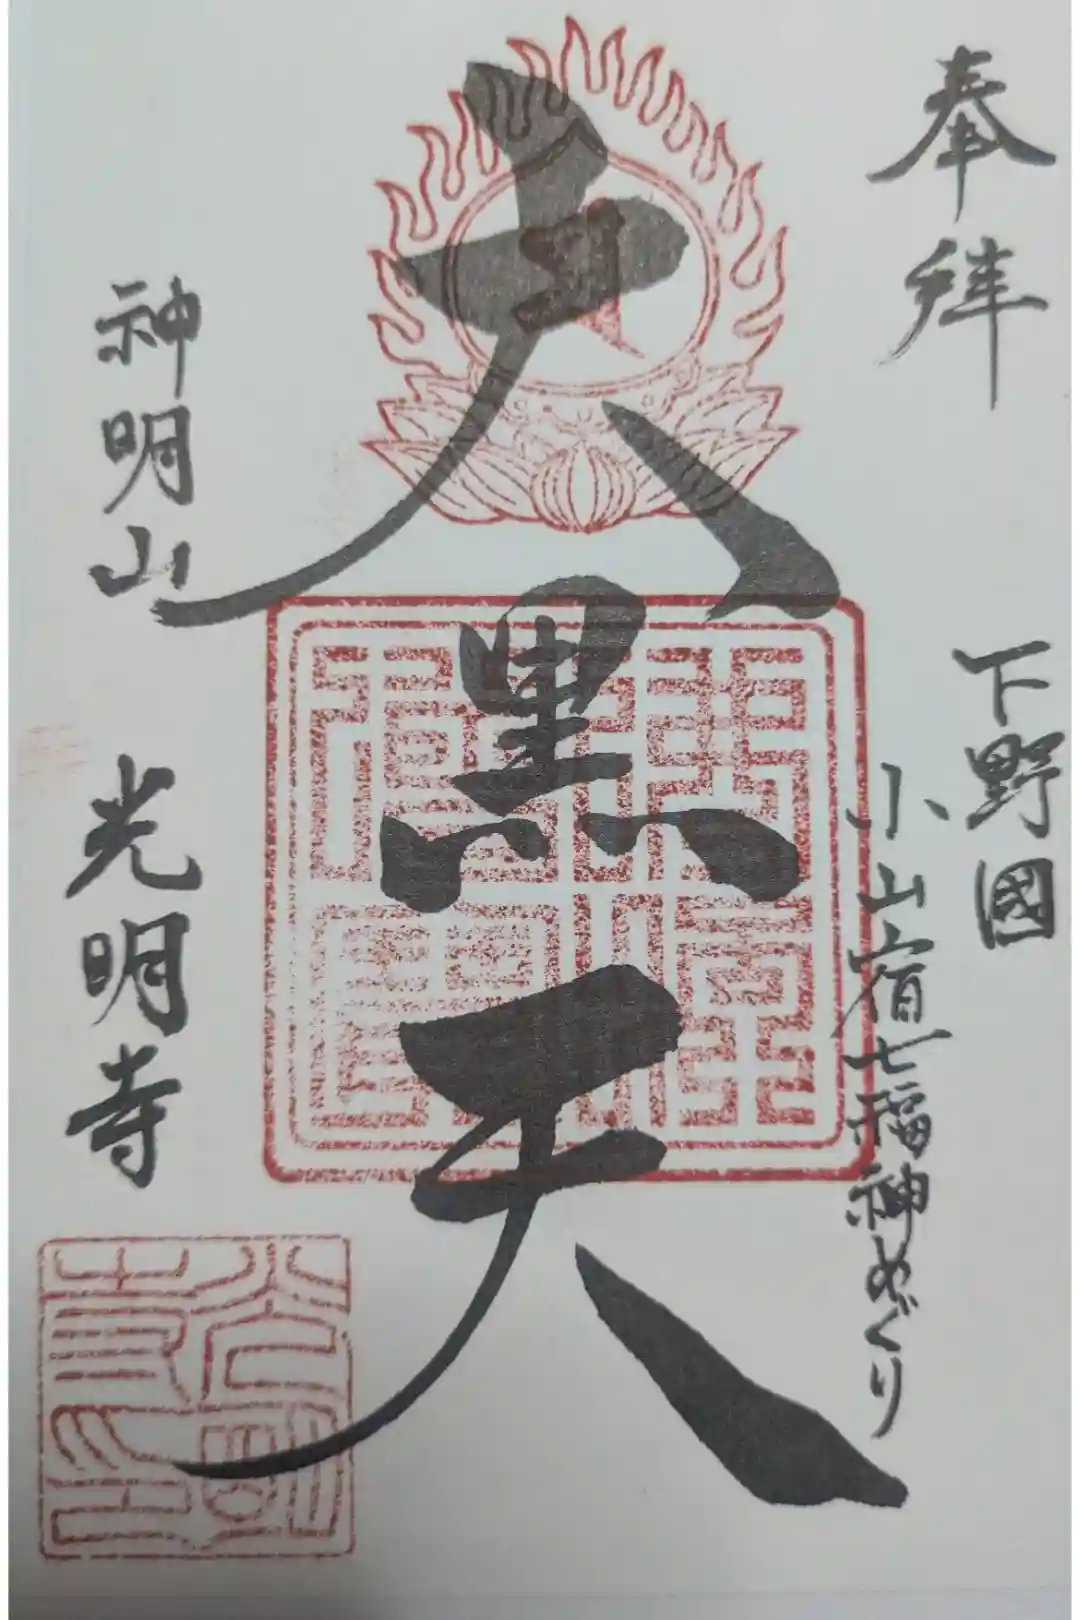 奉拝
下野國
小山宿七福神めぐり
大黒天
神明山
光明寺
光明寺印